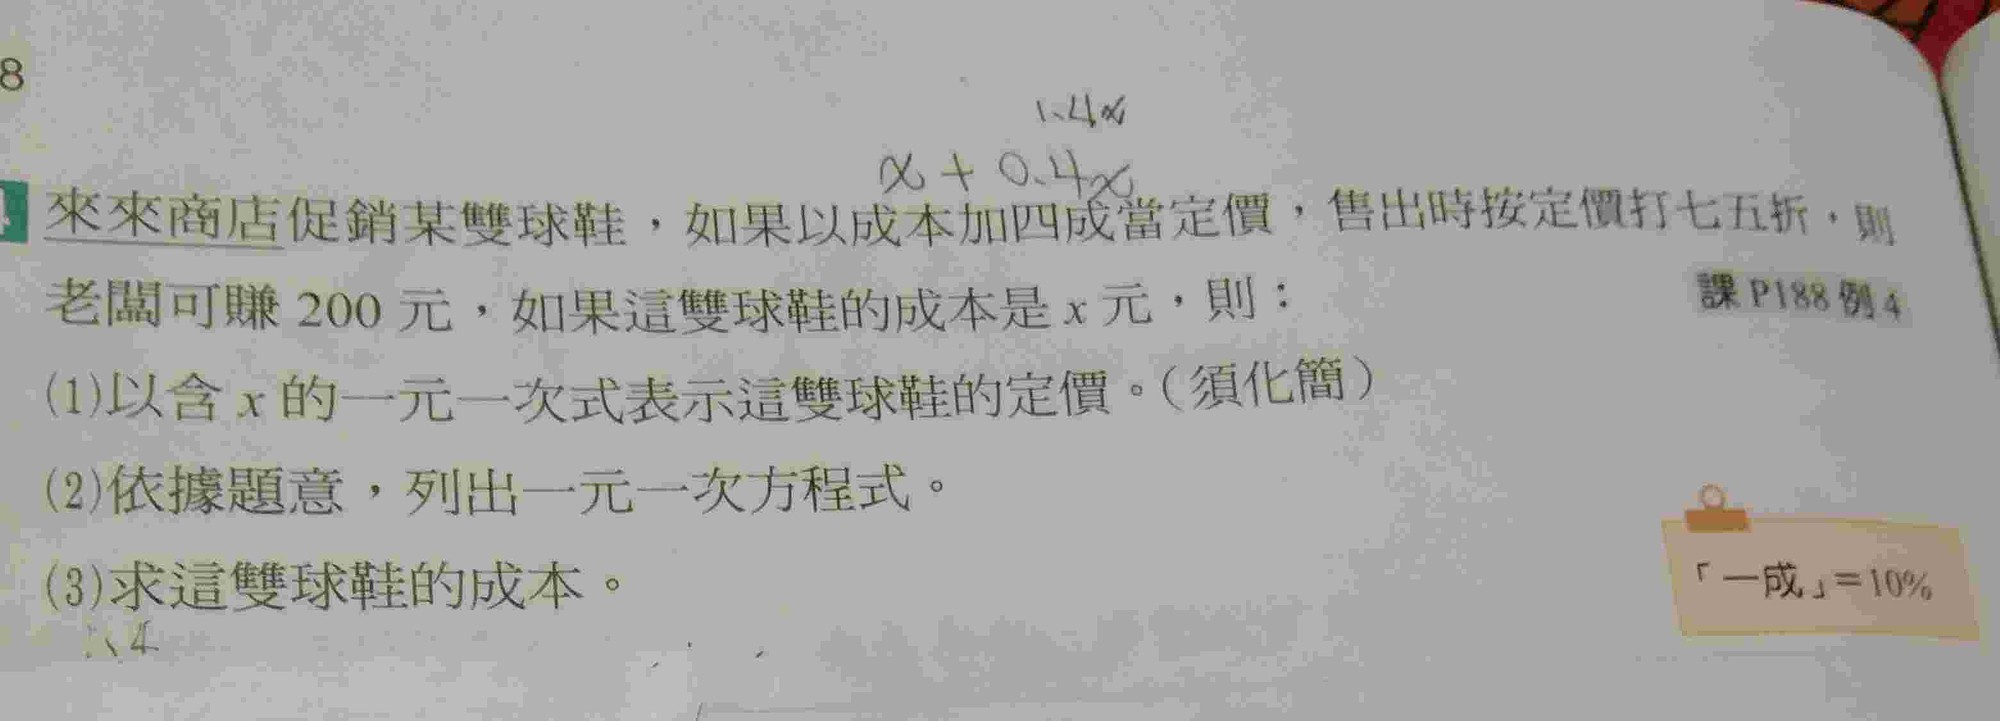 8
1.4x
x + 0.4x
來來商店促銷某雙球鞋，如果以成本加四成當定價，售出時按定價打七五折，則
老闆可賺 200 元，如果這雙球鞋的成本是 x 元，則：
課 P188 例 4
(1)以含 x 的一元一次式表示這雙球鞋的定價。（須化簡）
(2)依據題意，列出一元一次方程式。
「一成」=10%
(3)求這雙球鞋的成本。